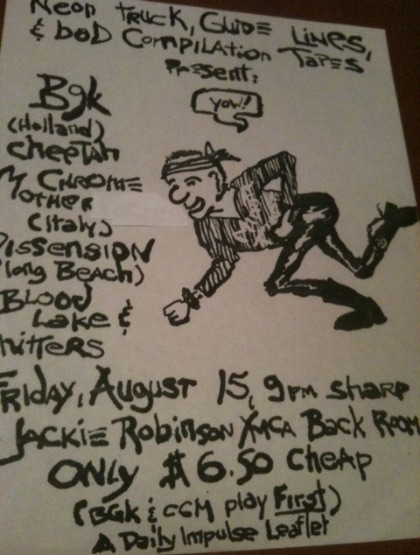 Neon Truck, Guide Lines,
& bOD Compilation Tapes
Present:
yow!
Bgk
(Holland)
Cheetah
Chrome
Mother
(Italy)
Dissension
Long Beach)
Blood
Lake &
hitters
Friday, August 15, 9pm sharp
Jackie Robinson YMCA Back Room
Only $6.50 cheap
(BGK & CCM play First)
A Daily Impulse Leaflet